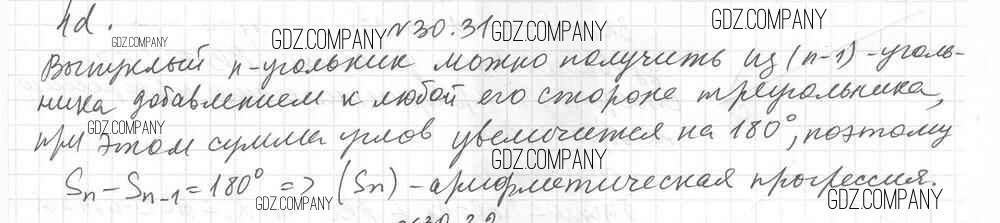 чd.
№30.31
Выпуклый n-угольник можно получить из (n-1)-уголь-
ника добавлением к любой его стороне треугольника,
при этом сумма углов увеличится на 180°, поэтому
Sn - Sn-1 = 180° => (Sn) - арифметическая прогрессия.
GDZ.COMPANY
GDZ.COMPANY
GDZ.COMPANY
GDZ.COMPANY
GDZ.COMPANY
GDZ.COMPANY
GDZ.COMPANY
GDZ.COMPANY